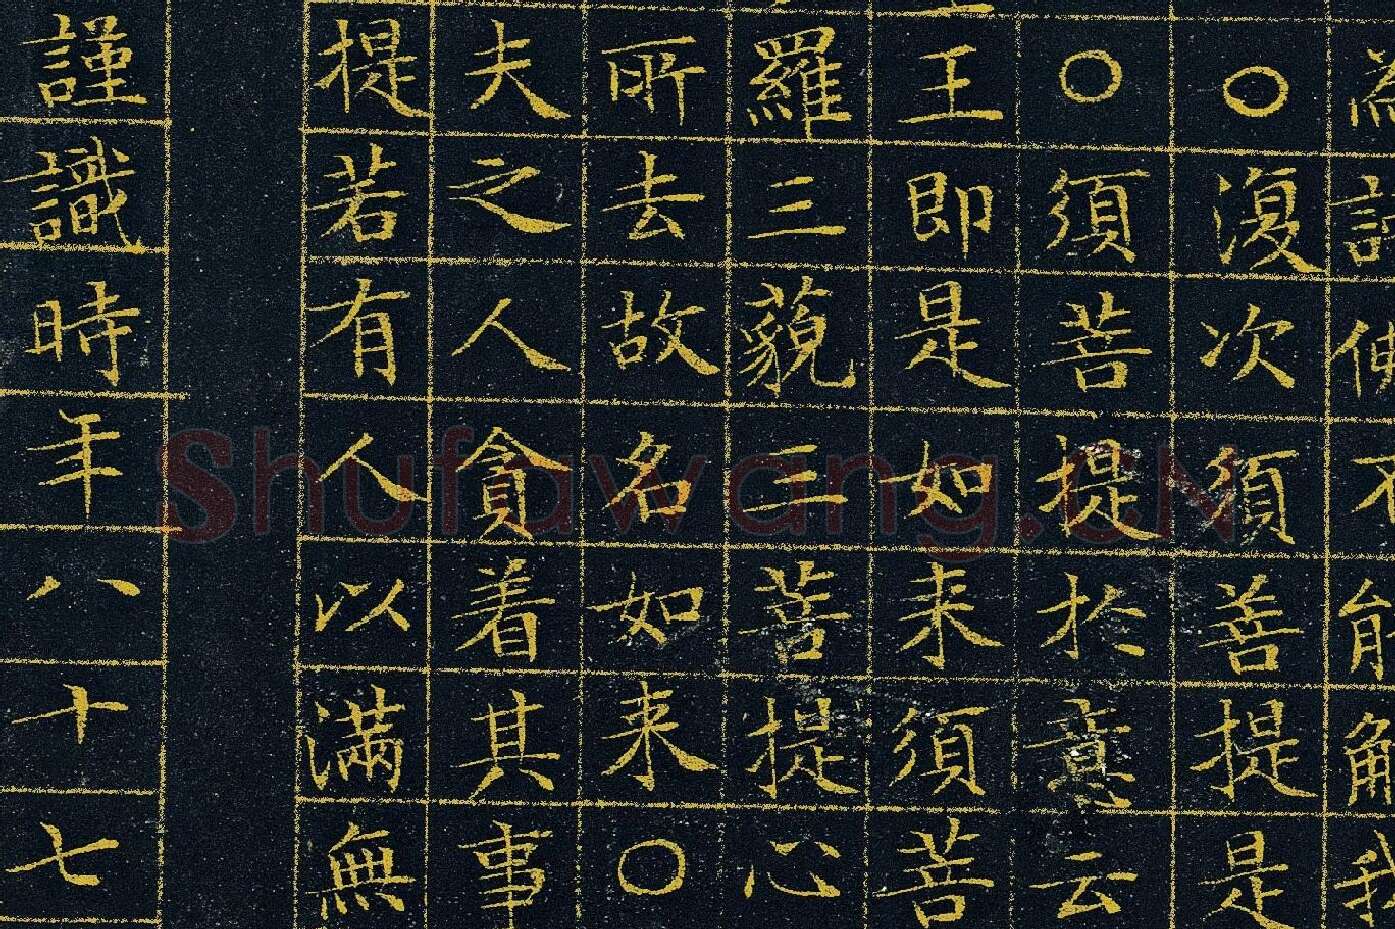 為謗佛不能解我
○復次須菩提是
○須菩提於意云
王即是如来須菩
羅三藐三菩提心
所去故名如来○
夫之人貪着其事
提若有人以滿無
謹識時年八十七
Shufawang.CN